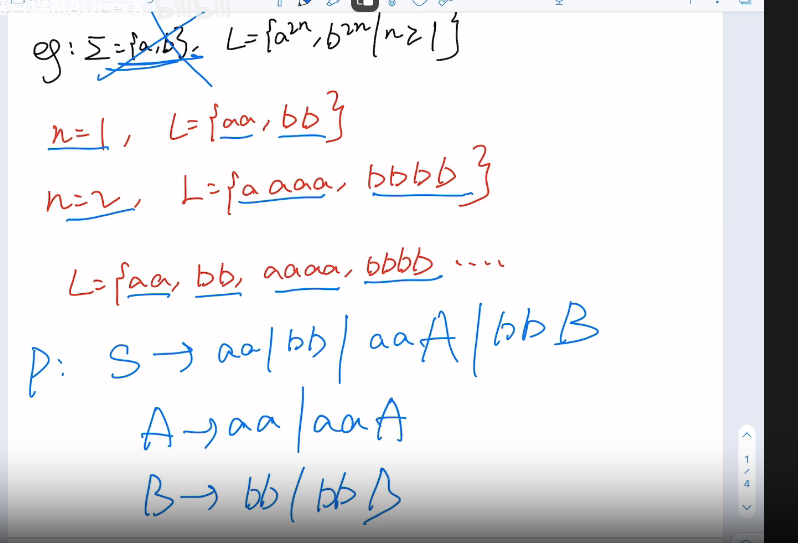 eg: Σ={a,b}, L={a²ⁿ, b²ⁿ | n≥1}
n=1, L={aa, bb}
n=2, L={aaaa, bbbb}
L={aa, bb, aaaa, bbbb ....
P: S → aa | bb | aaA | bbB
A → aa | aaA
B → bb | bbB
1
/
4